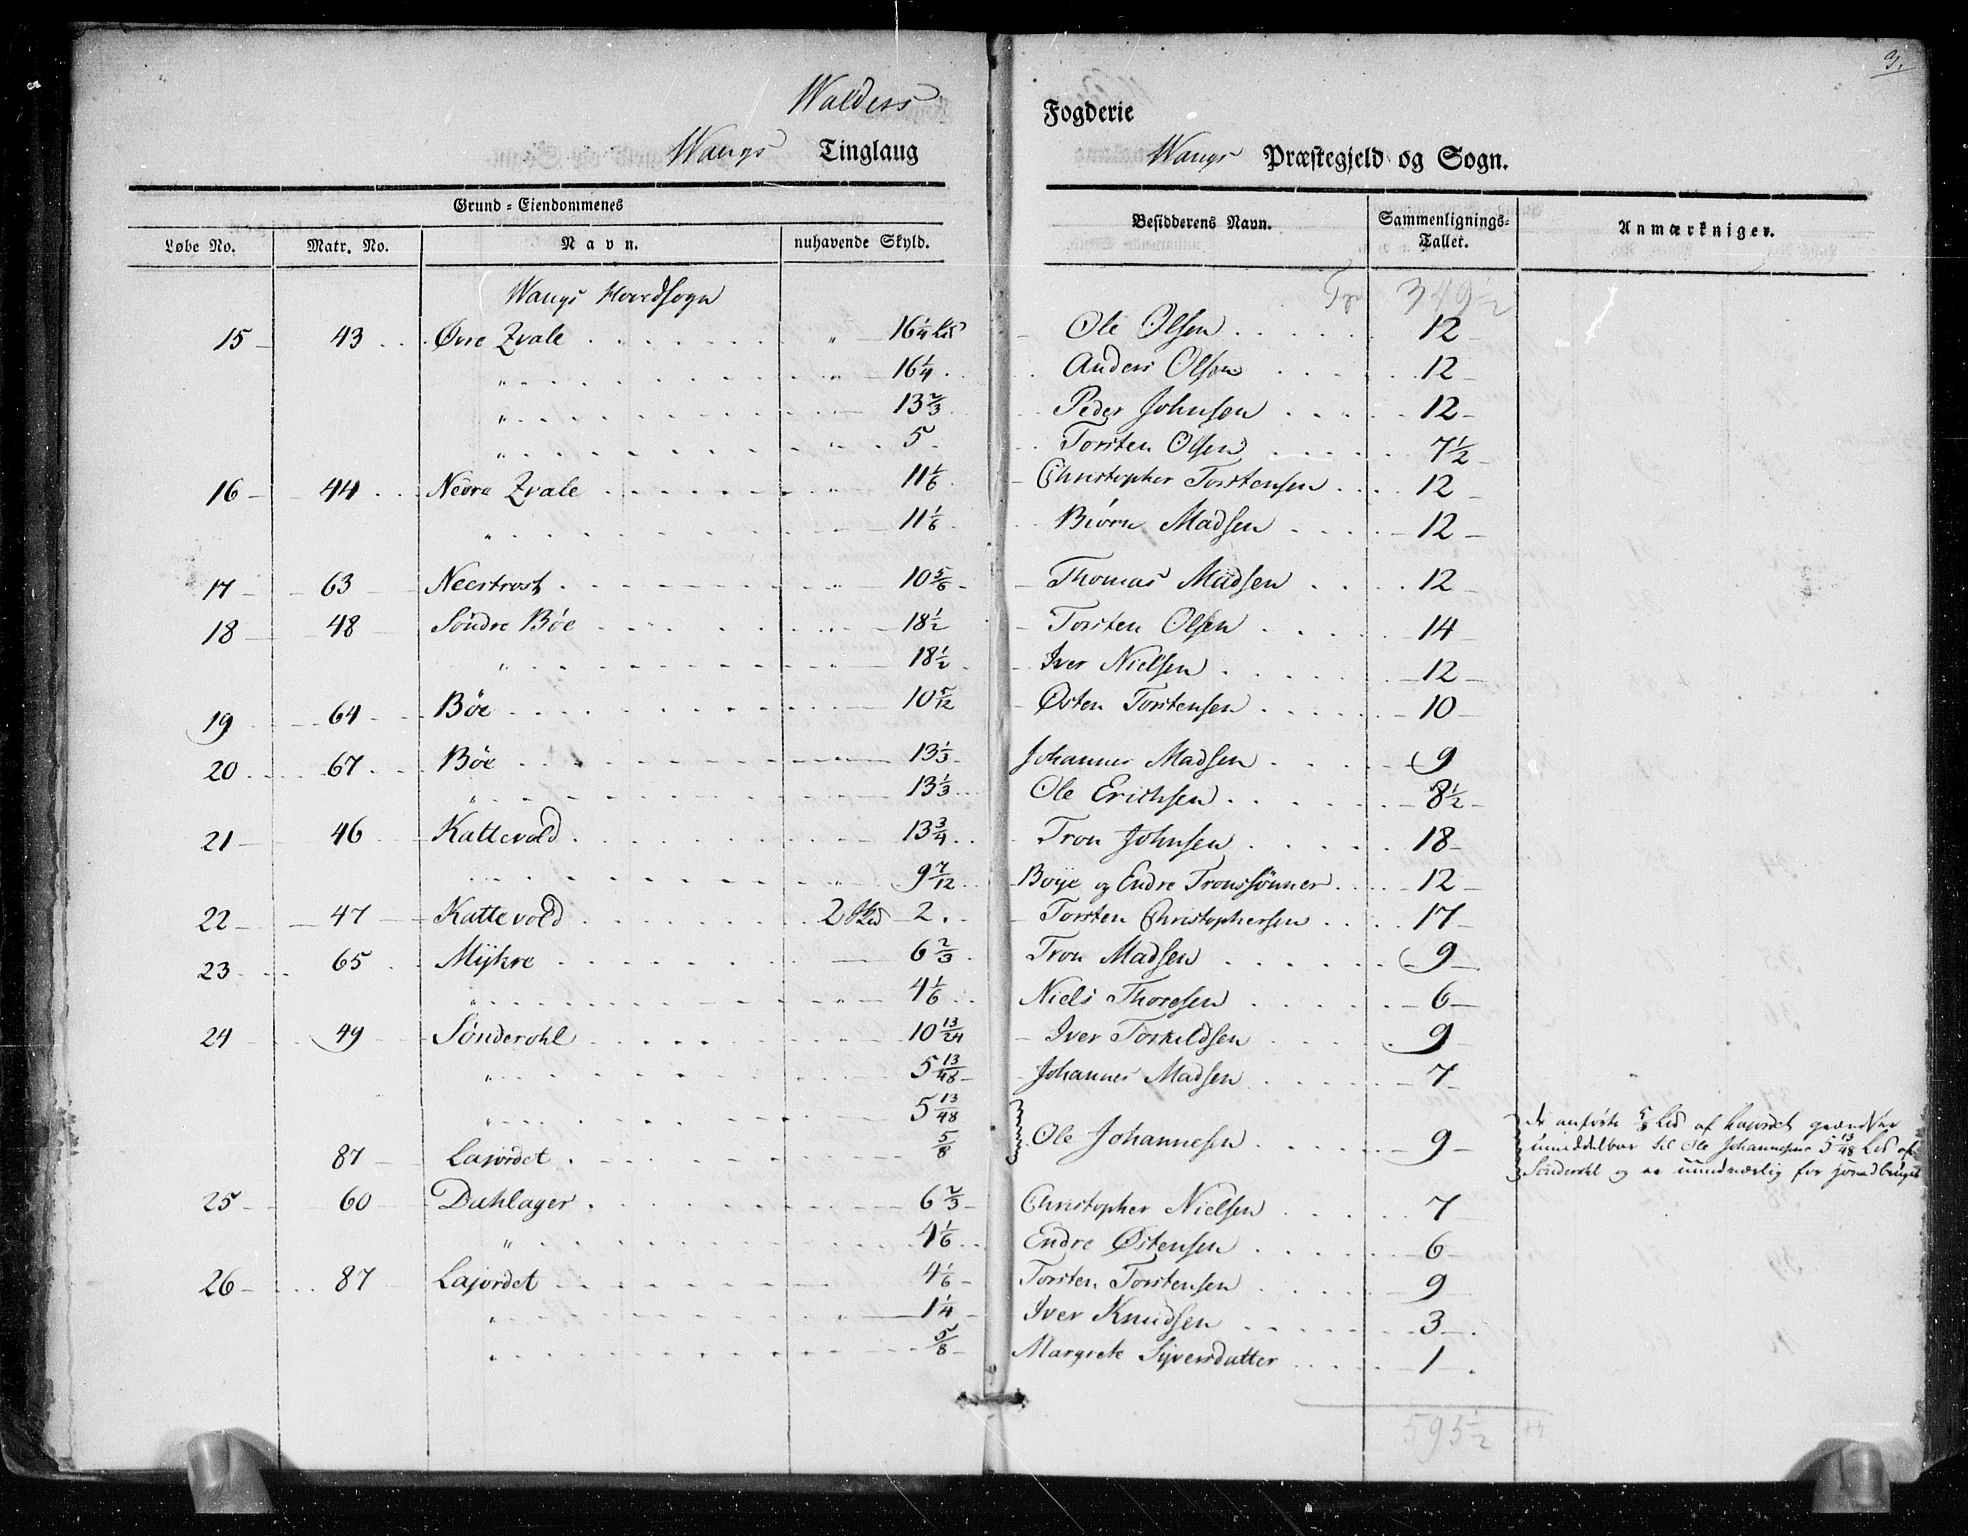 3.
Walders Fogderie
Wangs Tinglaug Wangs Præstegjeld og Sogn.
Grund-Eiendommenes
Løbe No. Matr. No. Navn. nuhavende Skyld. Besidderens Navn. Sammenlignings-Tallet. Anmærkninger.
Wangs Hovedsogn 349 1/2
15 43 Øvre Qvale " 16 1/4 L℔ Ole Olsen 12
" " 16 1/4 Anders Olsen 12
" " 13 2/3 Peder Johnsen 12
" " 5 Torsten Olsen 7 1/2
16 44 Nedre Qvale " 11 1/6 Christopher Torstensen 12
" " 11 1/6 Biörn Madsen 12
17 63 Neestrost " 10 5/6 Thomas Madsen 12
18 48 Söndre Böe " 18 1/2 Torsten Olsen 14
" " 18 1/2 Iver Nielsen 12
19 64 Böe 10 5/12 Østen Torstensen 10
20 67 Böe 13 1/3 Johannes Madsen 9
" 13 1/3 Ole Erichsen 8 1/2
21 46 Kattevold 13 3/4 Tron Johnsen 18
" 9 7/12 Boye og Endre Tronssönner 12
22 47 Kattevold 2 2 Torsten Christophersen 17
23 65 Mÿkre 6 2/3 Tron Madsen 9
" " 4 1/6 Niels Thoresen 6
24 49 Sönderohl 10 13/24 Iver Torkildsen 9
" 5 13/48 Johannes Madsen 7
" 5 13/48
87 Lajordet 5/8 Ole Johannesen 9
De anförte 5/8 L℔ af Lajordet grændser
umiddelbar til Ole Johannesens 5 13/48 L℔ af
Sönderohl og er uundværlig for jordbruget
25 60 Dahlager 6 2/3 Christopher Nielsen 7
" 4 1/6 Endre Østensen 6
26 87 Lajordet 4 1/6 Torsten Torstensen 9
" " 1 1/4 Iver Knudsen 3
" 5/8 Margrete Syversdatter 1
595 1/2